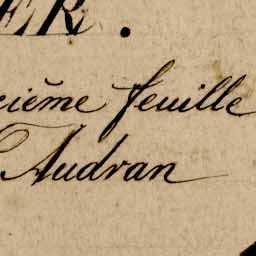 ER.
cième feuille
Audran